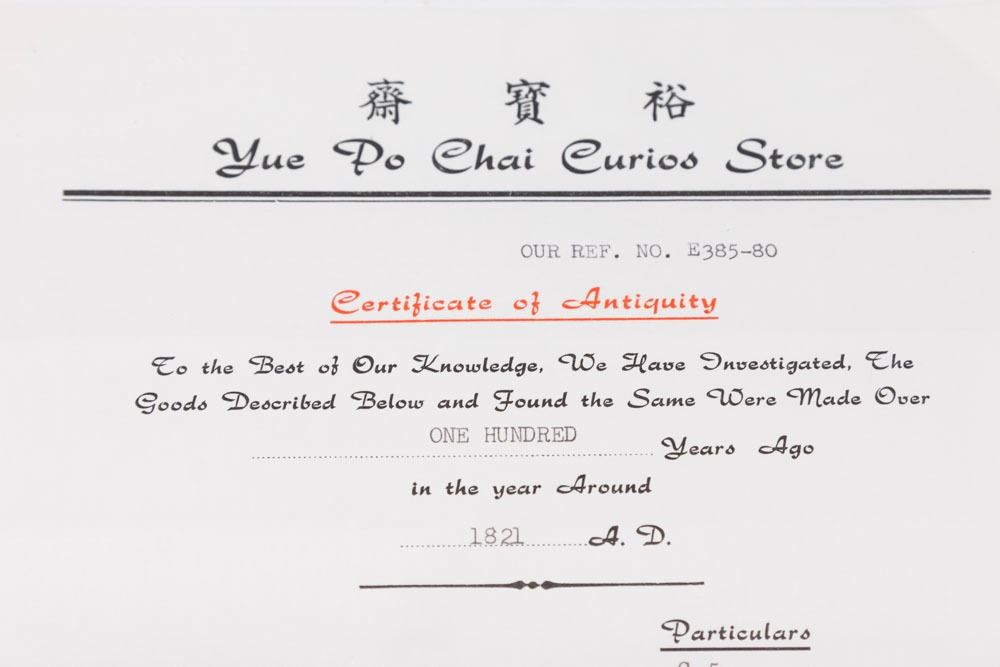 齋寶裕
Yue Po Chai Curios Store
OUR REF. NO. E385-80
Certificate of Antiquity
To the Best of Our Knowledge, We Have Investigated, The
Goods Described Below and Found the Same Were Made Over
ONE HUNDRED Years Ago
in the year Around
1821 A. D.
Particulars